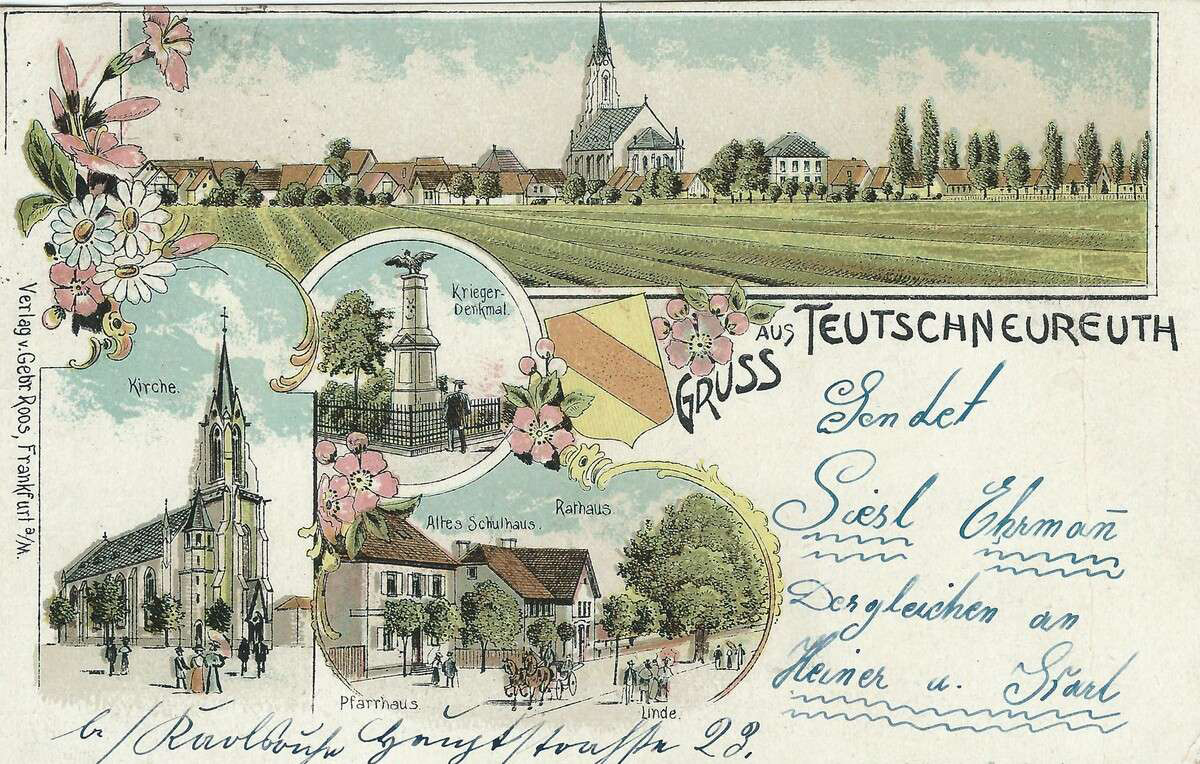 Krieger-
Denkmal.
GRUSS AUS TEUTSCHNEUREUTH
Kirche.
Verlag v. Gebr. Roos, Frankfurt a/M.
Altes Schulhaus.
Rathaus
Pfarrhaus
Linde.
Sendet
Siesl Ehrman̄
Desgleichen an
Heiner u. Karl
b/Karlsruhe Hauptstrasse 23.